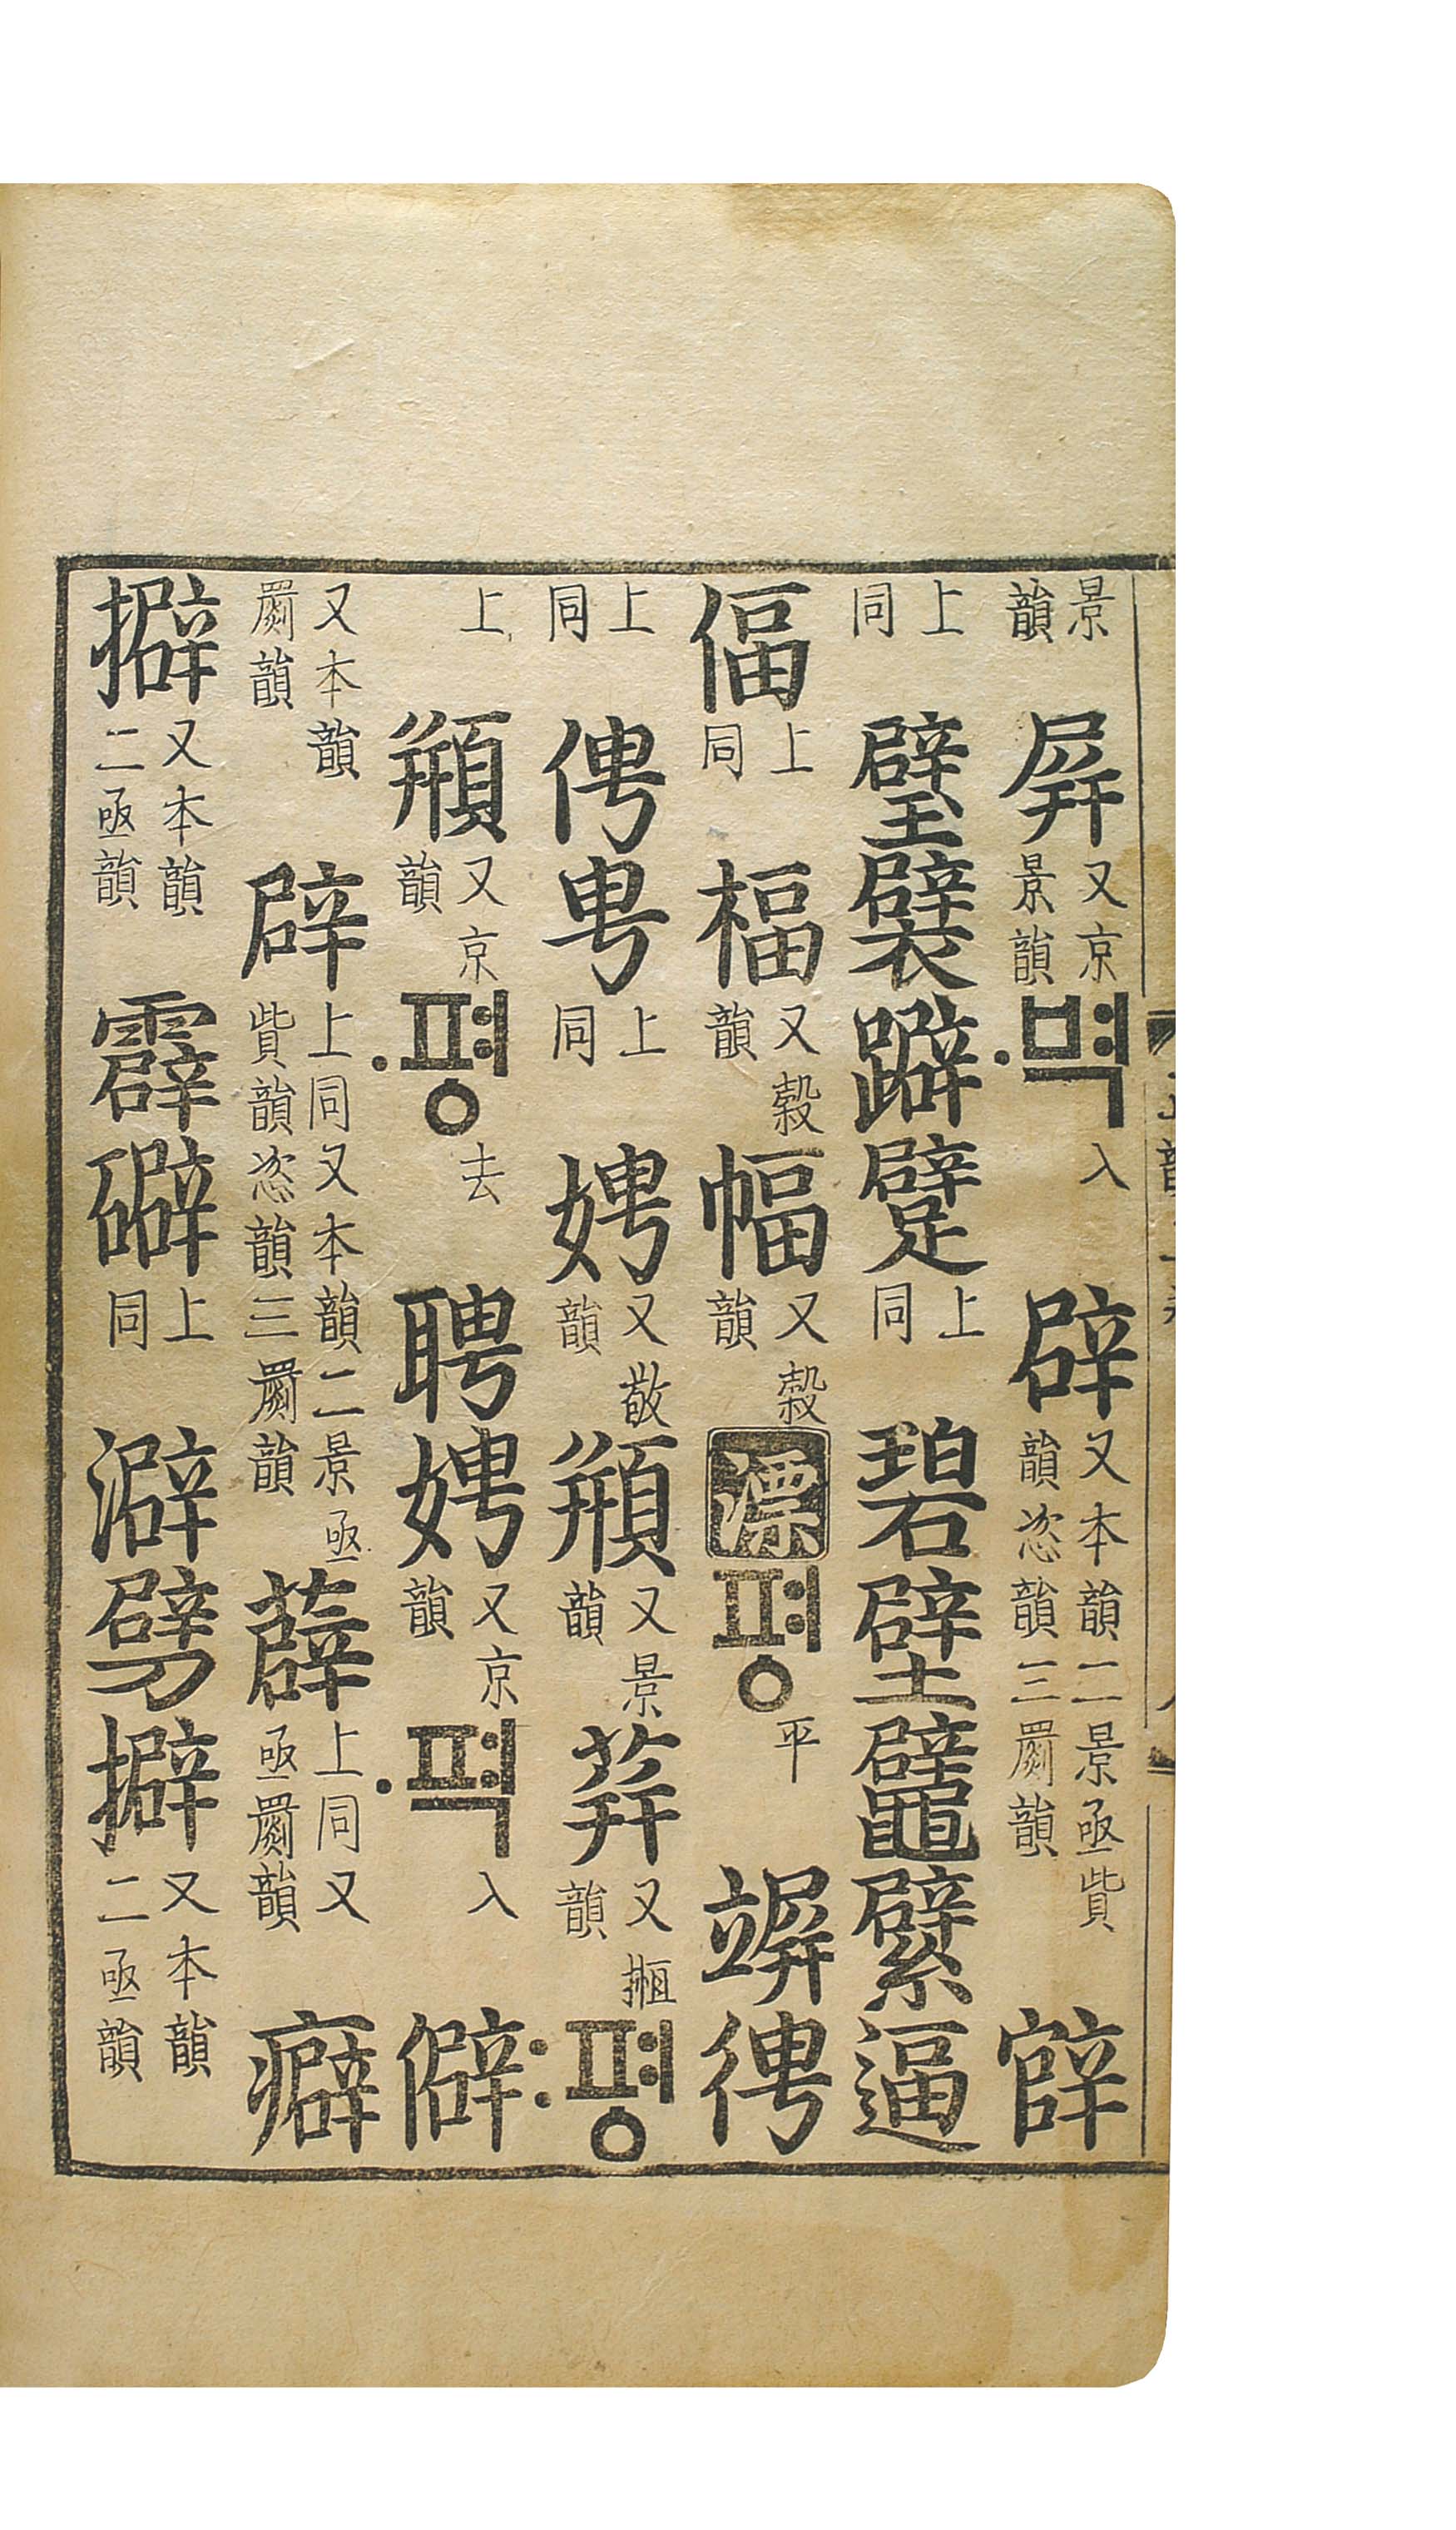 景韻 屛 又京景韻 ·벽 入 辟 又本韻二景亟貲韻恣韻三罽韻
上同 璧 襞 躃 躄 上同 碧 壁 鼊 繴 逼
偪 上同 楅 又穀韻 幅 又穀韻 漂 평 平
上同 俜 甹 上同 娉 又敬韻 頩 又景韻 荓 又揯韻 :평
上 頩 又京韻 ·평 去 聘 娉 又京韻 ·펵 入 僻
又本韻罽韻 辟 上同又本韻二景亟貲韻恣韻三罽韻 薜 上同又亟罽韻 癖
擗 又本韻二亟韻 霹 礔 上同 澼 劈 擗 又本韻二亟韻